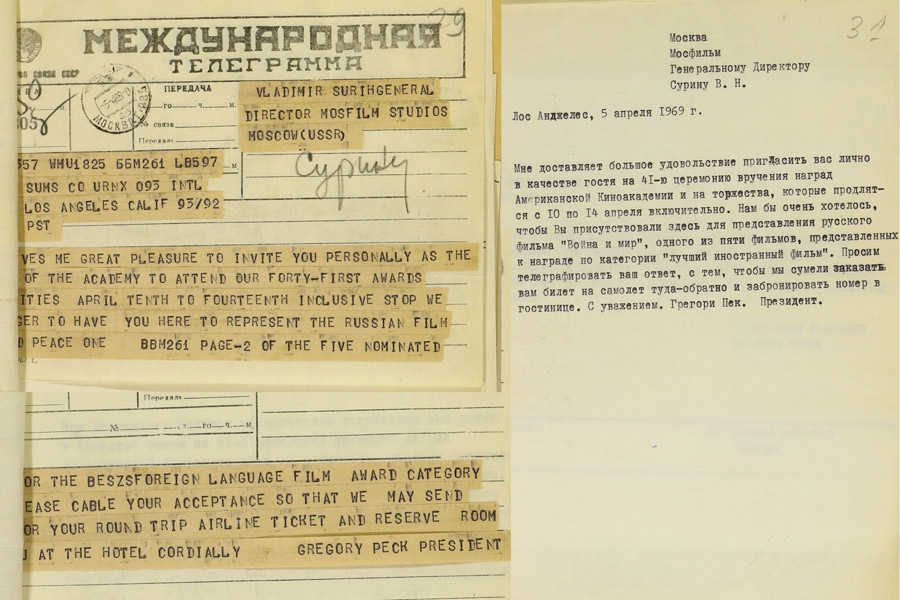 29
МЕЖДУНАРОДНАЯ
ТЕЛЕГРАММА
СВЯЗИ СССР
МОСКВА
ПЕРЕДАЧА
го ч. м.
№ связи
Передал:
VLADIMIR SURIHGENERAL
DIRECTOR MOSFILM STUDIOS
MOSCOW(USSR)
Сурину
357 WMU1825 ББM261 LB597
SUMS CO URNX 093 INTL
LOS ANGELES CALIF 93/92
PST
VES ME GREAT PLEASURE TO INVITE YOU PERSONALLY AS THE
OF THE ACADEMY TO ATTEND OUR FORTY-FIRST AWARDS
ITIES APRIL TENTH TO FOURTEENTH INCLUSIVE STOP WE
GER TO HAVE YOU HERE TO REPRESENT THE RUSSIAN FILM
D PEACE ONE BBM261 PAGE-2 OF THE FIVE NOMINATED
Передал:
№ сл. го ч. м.
OR THE BESZSFOREIGN LANGUAGE FILM AWARD CATEGORY
EASE CABLE YOUR ACCEPTANCE SO THAT WE MAY SEND
OR YOUR ROUND TRIP AIRLINE TICKET AND RESERVE ROOM
U AT THE HOTEL CORDIALLY GREGORY PECK PRESIDENT
31
Москва
Мосфильм
Генеральному Директору
Сурину В. Н.
Лос Анджелес, 5 апреля 1969 г.
Мне доставляет большое удовольствие пригласить вас лично
в качестве гостя на 41-ю церемонию вручения наград
Американской Киноакадемии и на торжества, которые продлят-
ся с 10 по 14 апреля включительно. Нам бы очень хотелось,
чтобы Вы присутствовали здесь для представления русского
фильма "Война и мир", одного из пяти фильмов, представленных
к награде по категории "лучший иностранный фильм". Просим
телеграфировать ваш ответ, с тем, чтобы мы сумели заказать
вам билет на самолет туда-обратно и забронировать номер в
гостинице. С уважением. Грегори Пек. Президент.